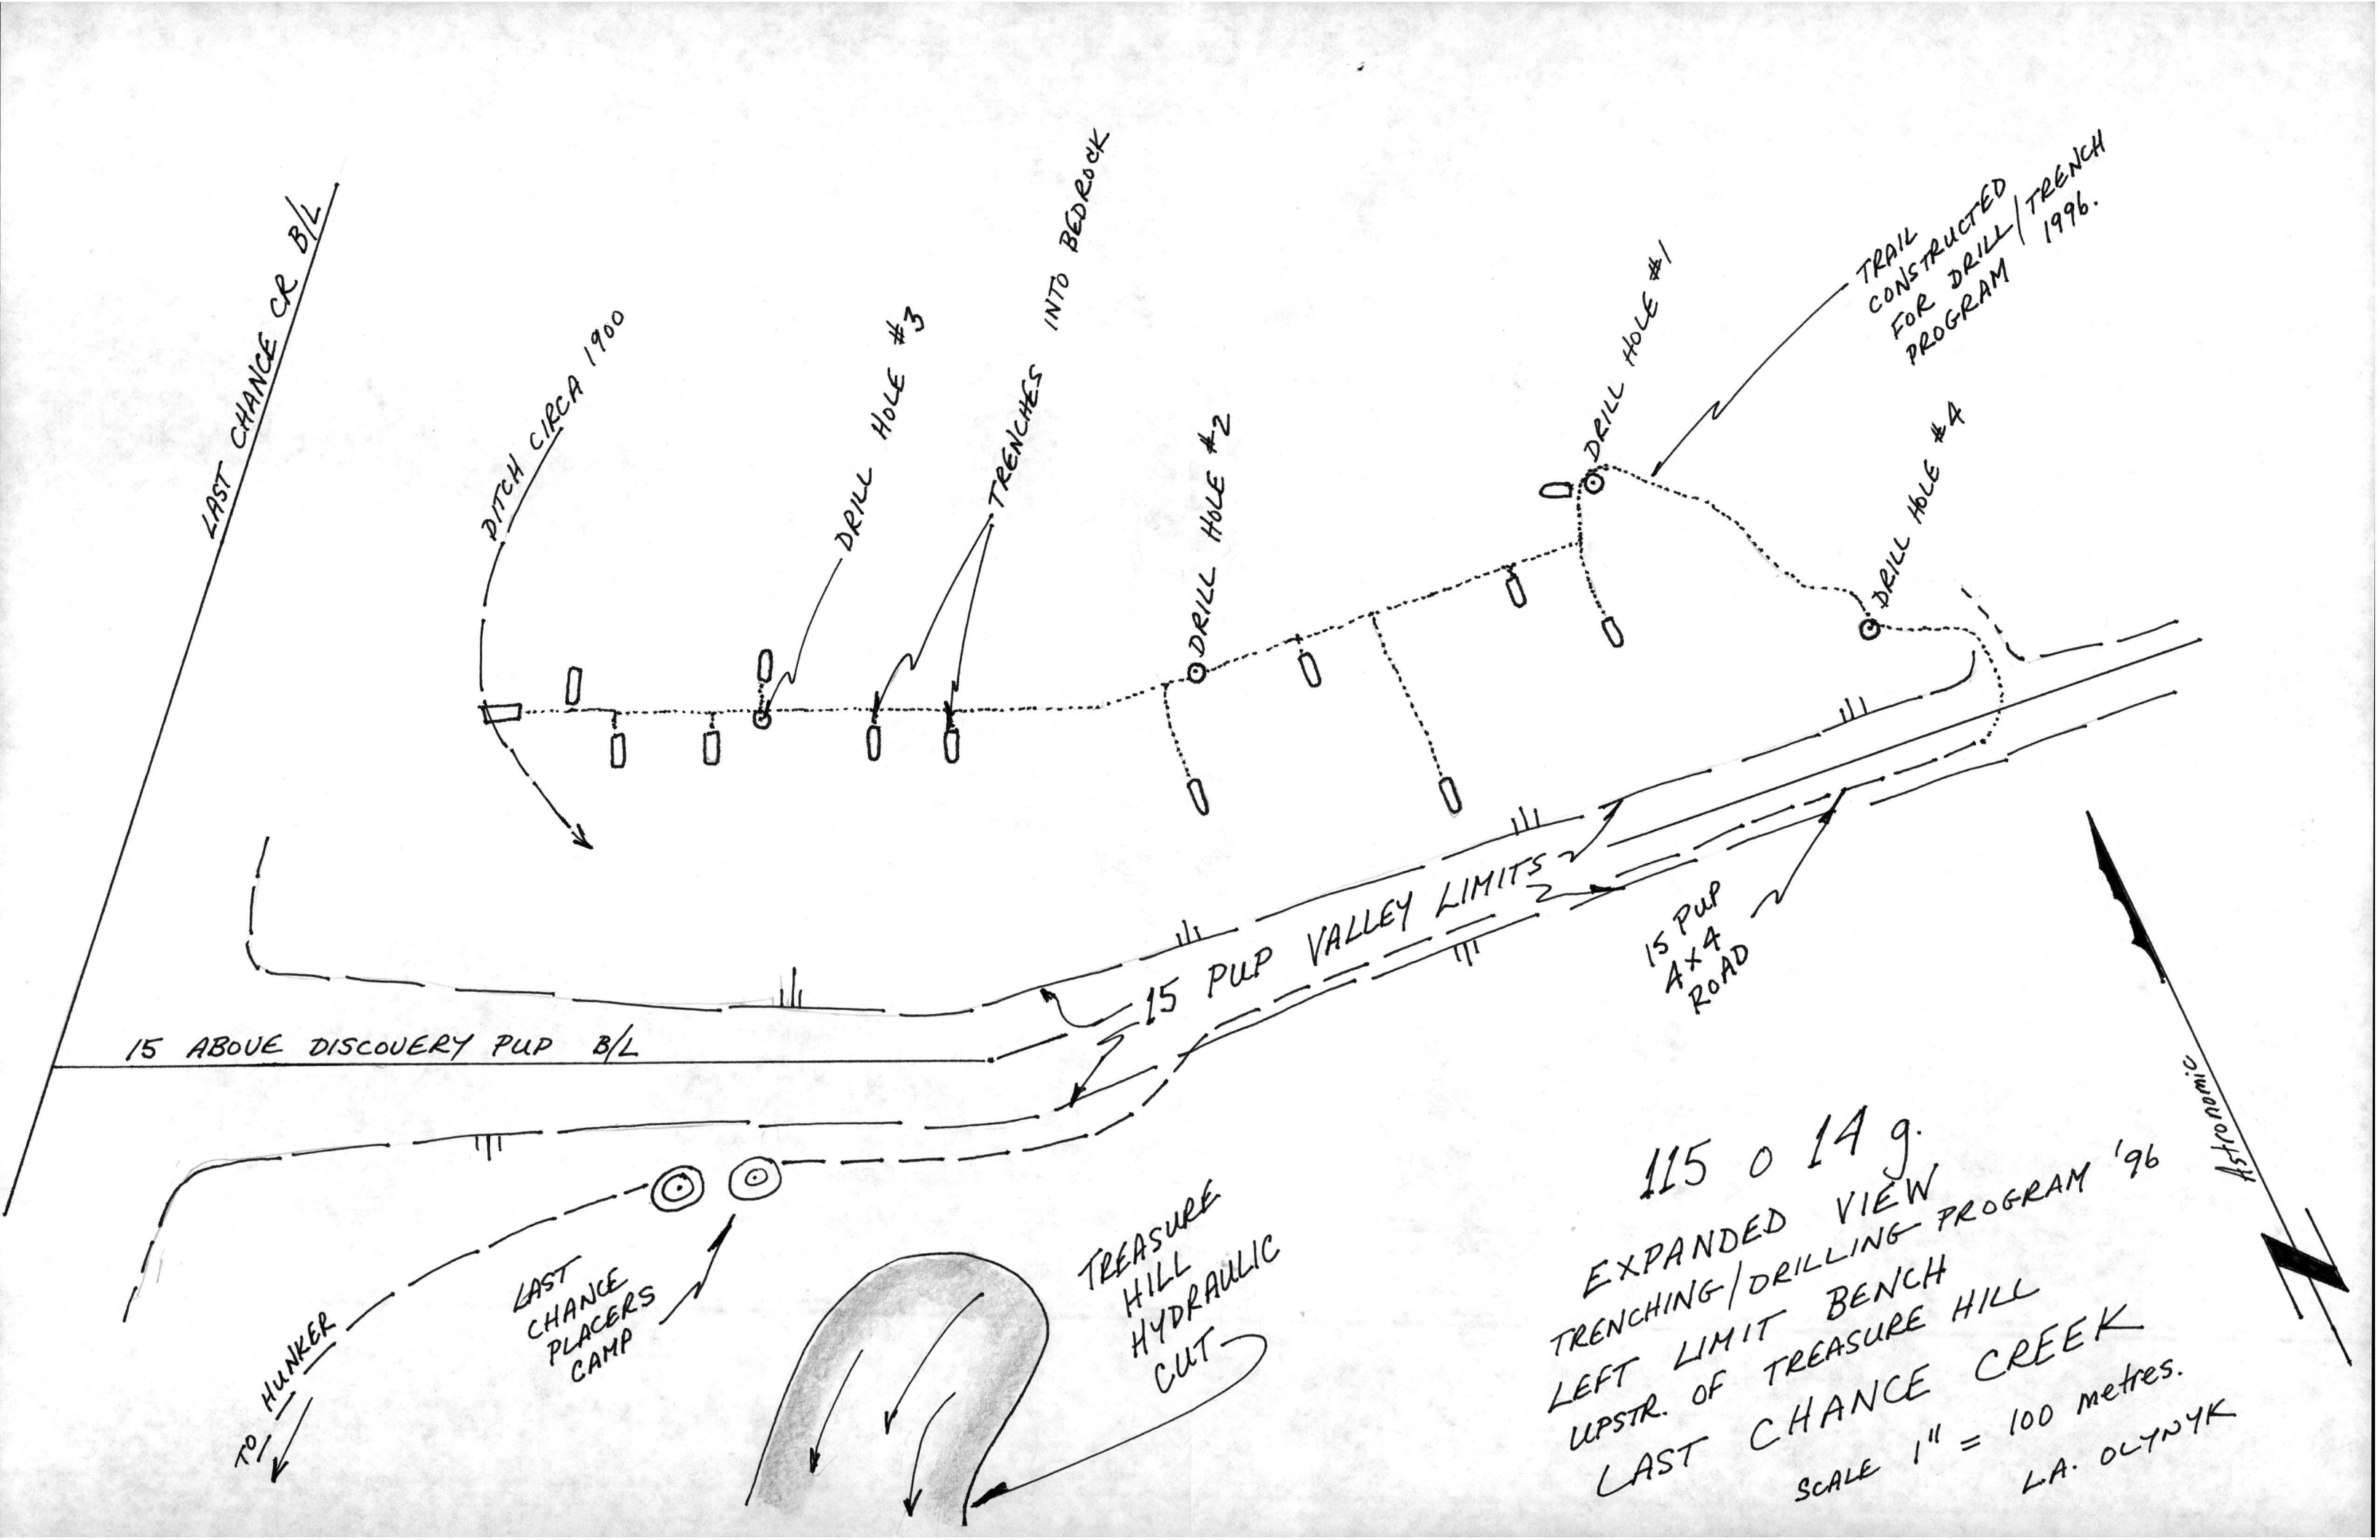 LAST CHANCE CR B/L
DITCH CIRCA 1900
DRILL HOLE #3
TRENCHES INTO BEDROCK
DRILL HOLE #2
DRILL HOLE #1
TRAIL
CONSTRUCTED
FOR DRILL/TRENCH
PROGRAM 1996.
DRILL HOLE #4
15 PUP VALLEY LIMITS
15 PUP
4X4
ROAD
15 ABOVE DISCOVERY PUP B/L
LAST
CHANCE
PLACERS
CAMP
TO HUNKER
TREASURE
HILL
HYDRAULIC
CUT
Astronomic
115 O 14 g.
EXPANDED VIEW
TRENCHING/DRILLING PROGRAM '96
LEFT LIMIT BENCH
UPSTR. OF TREASURE HILL
LAST CHANCE CREEK
SCALE 1" = 100 metres.
L.A. OLYNYK